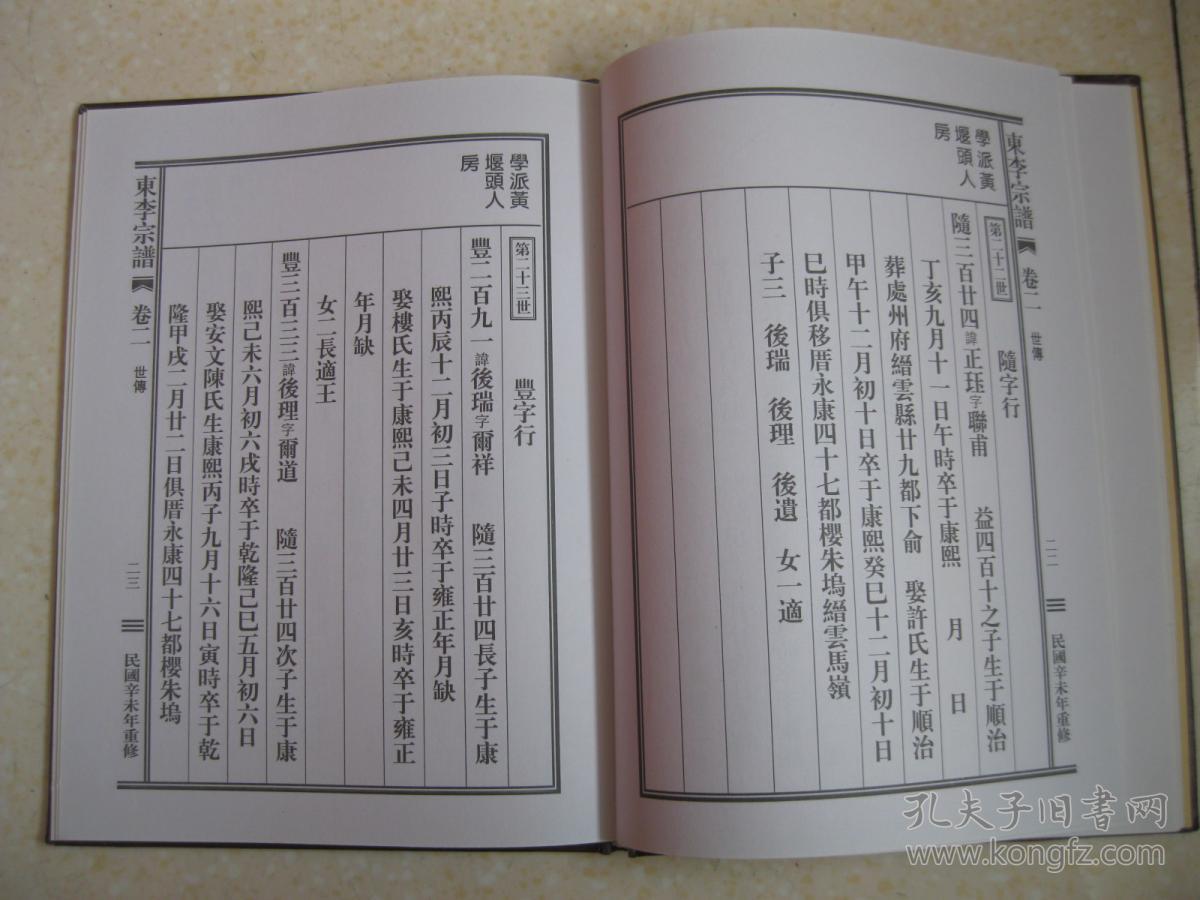 東李宗譜 卷二 世傳 二二 民國辛未年重修
學派黃
堰頭人
房
第二十二世 隨字行
隨三百廿四諱正珏字聯甫 益四百十之子生于順治
丁亥九月十一日午時卒于康熙 月 日
葬處州府縉雲縣廿九都下俞 娶許氏生于順治
甲午十二月初十日卒于康熙癸巳十二月初十日
巳時俱移厝永康四十七都櫻朱塢縉雲馬嶺
子三 後瑞 後理 後遺 女一適
學派黃
堰頭人
房
第二十三世 豐字行
豐二百九一諱後瑞字爾祥 隨三百廿四長子生于康
熙丙辰十二月初三日子時卒于雍正年月缺
娶樓氏生于康熙己未四月廿三日亥時卒于雍正
年月缺
女二長適王
豐三百三三諱後理字爾道 隨三百廿四次子生于康
熙己未六月初六戌時卒于乾隆己巳五月初六日
娶安文陳氏生康熙丙子九月十六日寅時卒于乾
隆甲戌二月廿二日俱厝永康四十七都櫻朱塢
東李宗譜 卷二 世傳 二三 民國辛未年重修
孔夫子旧书网
www.kongfz.com